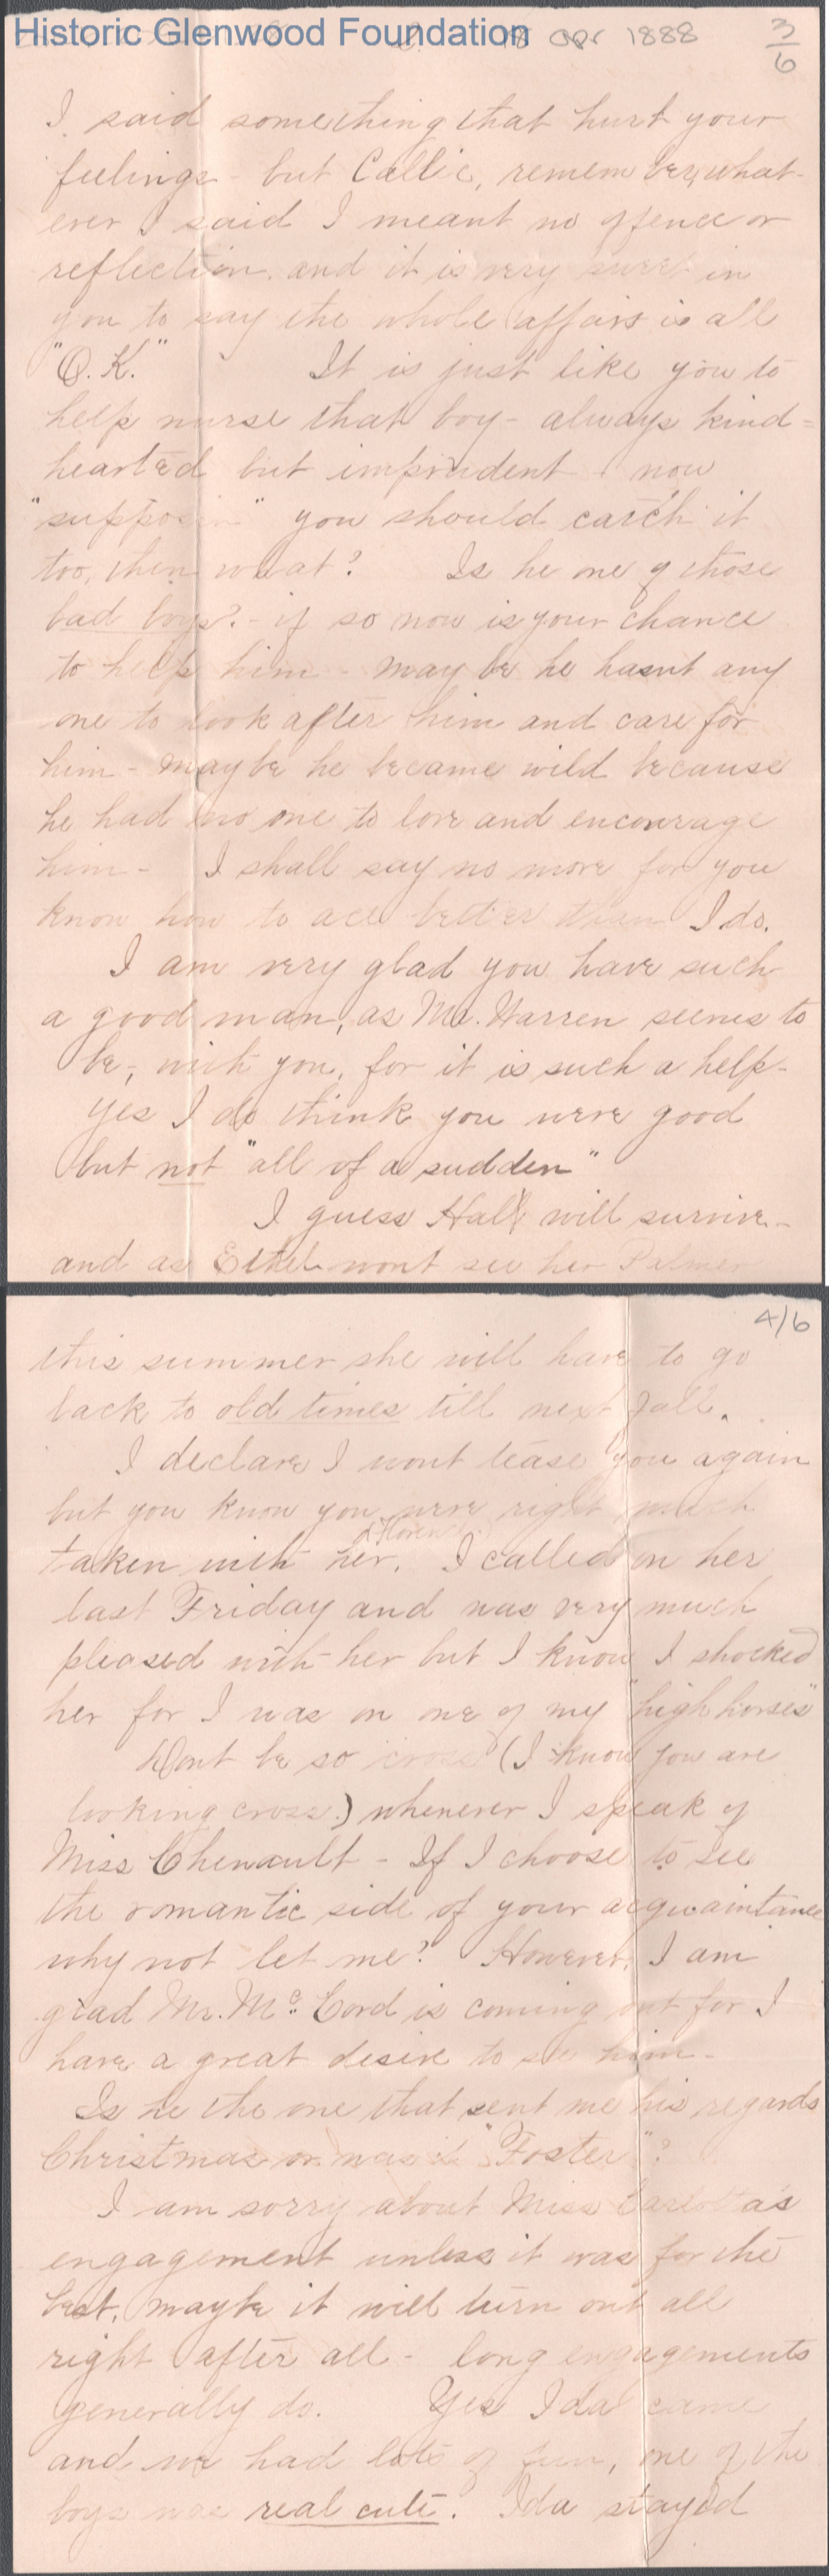 Historic Glenwood Foundation
18 apr 1888
3/6
I said something that hurt your
feelings - but Callie, remember, what-
ever I said I meant no offence or
reflection. and it is very sweet in
you to say the whole affair is all
"O.K." It is just like you to
help nurse that boy - always kind=
hearted but imprudent - now
"supposin" you should catch it
too, then what? Is he one of those
bad boys? - if so now is your chance
to help him - may be he hasnt any
one to look after him and care for
him - maybe he became wild because
he had no one to love and encourage
him - I shall say no more for you
know how to act better than I do.
I am very glad you have such
a good man, as Mr. Warren seems to
be, with you, for it is such a help -
yes I do think you were good
but not "all of a sudden"
I guess Hall will survive -
and as Ethel wont see her Palmer
4/6
this summer she will have to go
back to old times till next fall.
I declare I wont tease you again
but you know you were right much
(Florence)
taken with her. I called on her
last Friday and was very much
pleased with her but I know I shocked
her for I was on one of my "high horses"
Dont be so cross (I know you are
looking cross.) whenever I speak of
Miss Chenault - If I choose to see
the romantic side of your acquaintance
why not let me? However, I am
glad Mr. Mc Cord is coming out for I
have a great desire to see him -
Is he the one that sent me his regards
Christmas or was it "Foster"?
I am sorry about Miss Carlotta's
engagement unless it was for the
best. maybe it will turn out all
right after all - long engagements
generally do. Yes Ida came
and we had lots of fun, one of the
boys was real cute. Ida stayed